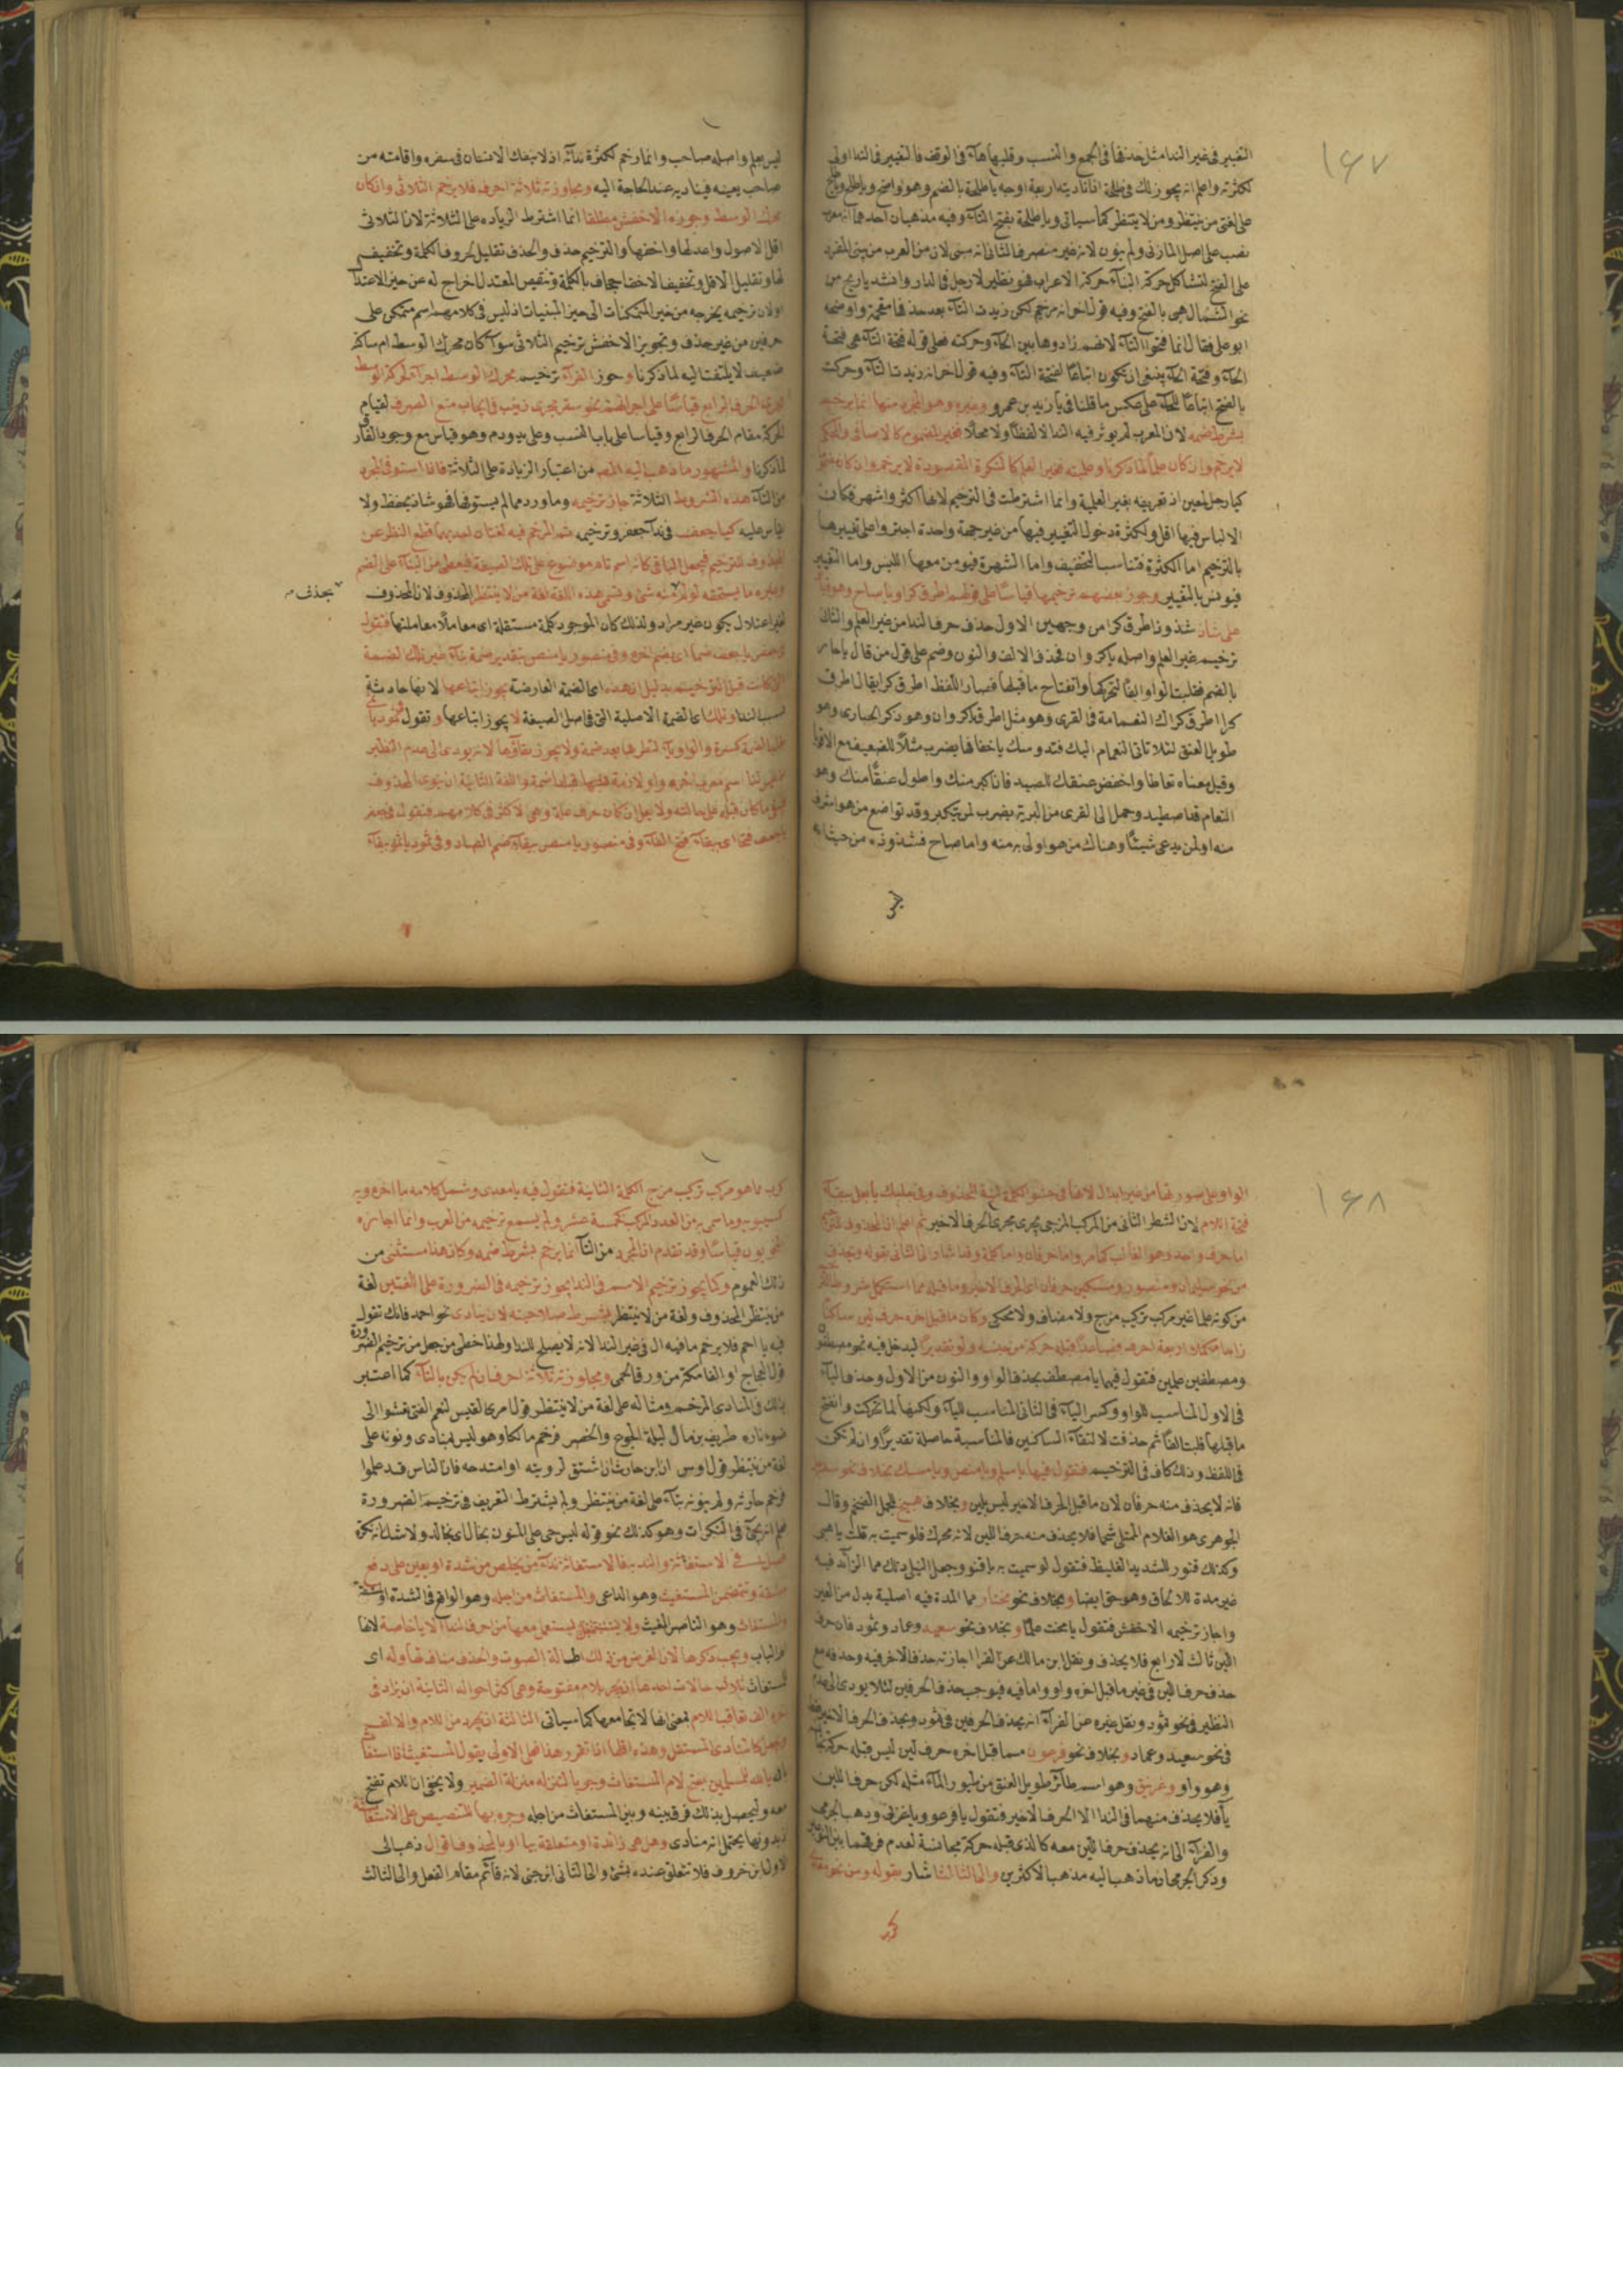 ١٦٧
التغيير فى غير الندا مثل حذفها فى الجمع والنسب وقلبها هاء فى الوقف فالتغيير فى الندا اولى
لكثرته واعلم انه يجوز لك فى طلحة اذا ناديته اربعة اوجه يا طلحة بالضم وهو واضح ويا طلح ويا طلح
على لغتى من ينتظر ومن لا ينتظر كما سياتى ويا طلحة بفتح التاء وفيه مذهبان احدهما انه معرب
نصب على اصل المنادى ولم ينون لانه غير منصرف الثانى انه مبنى لان من العرب من يبنى المفرد
على الفتح لتشاكل حركة البناء حركة الاعراب فهو نظير لا رجل فى الدار وانشد يا ريح من
نحو الشمال هبى بالفتح وفيه قول اخر انه مرخم لكن زيدت التاء بعد حذفها مقحمة واوضحه
ابو على فقال انما فتحوا التاء لانهم زادوها بين الحاء وحركتها فعلى قوله فتحة التاء هى فتحة
الحاء وفتحة الحاء ينبغى ان تكون اتباعًا لفتحة التاء وفيه قول اخر انه زيدت التاء وحركت
بالفتح اتباعًا للحاء على عكس ما قلنا فى يا زيد بن عمرو وغيره وهو المجرد منها انما يرخم
بشرط ضمه لان المعرب لم يوثر فيه الندا لا لفظًا ولا محلًا فغير المضموم كالاضافى والمحكى
لا يرخم وان كان علمًا لما ذكرنا وعلميته فغير العلم كالنكرة المقصودة لا يرخم وان كان
كيا رجل لمعين اذ تعريفه بغير العلمية وانما اشترطت فى الترخيم لانها اكثر واشهر فكان
الالباس فيها اقل ولكثرة دخول التغيير فيها من غير جهة واحدة اجترؤا على تغييرها
بالترخيم اما الكثرة فتناسب التخفيف واما الشهرة فيومن معها اللبس واما التغيير
فيونس بالتغيير وجوز بعضهم ترخيمها قياسًا على قولهم اطرق كرا ويا صاح وهو
على شاذ شذوذ اطرق كرا من وجهين الاول حذف حرف الندا من غير العلم والثانى
ترخيم غير العلم واصله يا كروان فحذف الالف والنون وضم على قول من قال يا حار
بالضم فقلبت الواو الفًا لتحركها وانفتاح ما قبلها فصار اللفظ اطرق كرا يقال اطرق
كرا اطرق كرا ان النعامة فى القرى وهو مثل اطرق كرا وان وهو ذكر الحبارى وهو
طويل العنق لئلا تاتى النعام اليك فتدوسك باخفافها يضرب مثلًا للضعيف مع الاقوى
وقيل معناه تطاطا واخفض عنقك للصيد فان اكبر منك واطول عنقًا منك وهو
النعام قد اصطيد وحمل الى القرى من البرية يضرب لمن يتكبر وقد تواضع من هو اشرف
منه او لمن يدعى شيئًا وهناك من هو اولى به منه واما صاح فشذوذه من حيث انه
ليس
ليس بعلم واصله صاحب وانما رخم لكثرة ندائه اذ لا ينفك الانسان فى سفره واقامته من
صاحب يعينه فيناديه عند الحاجة اليه ومجاوزته ثلاثة احرف فلا يرخم الثلاثى وان كان
محرك الوسط وجوزه الاخفش مطلقا انما اشترط الزيادة على الثلاثة لان الثلاثى
اقل الاصول واعدلها واخفها والترخيم حذف والحذف تقليل لحروف الكلمة وتخفيف
لها وتقليل الاقل وتخفيف الاخف اجحاف بالكلمة وتنقيص المعتدل اخراج له عن حيز الاعتدال
ولان ترخيمه يخرجه من غير المتمكنات الى حيز المبنيات اذ ليس فى كلامهم اسم متمكن على
حرفين من غير حذف وتجويز الاخفش ترخيم الثلاثى سواء كان محرك الوسط ام ساكنه
ضعيف لا يلتفت اليه لما ذكرنا وجوز الفراء ترخيم محرك الوسط اجراء لحركة الوسط
مجرى الحرف الرابع قياسًا على اجرائهم نحو سقر مجرى زينب فى ايجاب منع الصرف لقيام
الحركة مقام الحرف الرابع وقياسا على باب النسب وعلى يد ودم وهو قياس مع وجود الفارق
لما ذكرنا والمشهور ما ذهب اليه المصـ من اعتبار الزيادة على الثلاثة فاذا استوفى المجرد
من التاء هذه الشروط الثلاثة جاز ترخيمه وما ورد مما لم يستوفها فهو شاذ يحفظ ولا
يقاس عليه كيا جعف فى ندا جعفر وترخيمه ثم المرخم فيه لغتان احديهما قطع النظر عن
المحذوف للترخيم فيجعل الباقى كانه اسم تام موضوع على تلك الصيغة فيعطى من البناء على الضم
وغيره ما يستحقه لو لم منه شئ وتسمى هذه اللغة لغة من لا ينتظر المحذوف لان المحذوف
يحذف
لغير اعتلال يكون غير مراد ولذلك كان الموجود كلمة مستقلة اى معاملًا معاملتها فتقول
فى جعفر يا جعف ضما اى بضم اخره وفى منصور يا منص بتقدير ضمة بناء غير تلك الضمة
التى كانت قبل الترخيم بدليل ان هذه اى الضمة العارضة يجوز اتباعها لانها حادثة
بسبب الندا وتلك اى الضمة الاصلية التى فى اصل الصيغة لا يجوز اتباعها وتقول فى ثمود يا ثمى
بقلب الضمة كسرة والواو ياء لتطرفها بعد ضمة ولا يجوز بقاؤها لانه يودى الى عدم النظير
اذ ليس لنا اسم معرب اخره واو لازمة قبلها ضمة واللغة الثانية ان ينوى المحذوف
فيبقى ما كان قبله على حالته ولا يعل ان كان حرف علة وهى الاكثر فى كلامهم فتقول فى جعفر
يا جعف فتحًا اى ببقاء فتح الفاء وفى منصور يا منص ببقاء ضم الصاد وفى ثمود يا ثمو ببقاء
١٦٨
الواو على صورتها من غير ابدال لانها فى حشو الكلمة لنية المحذوف وفى علبك يا بعل ببقاء
فتحة اللام لان الشطر الثانى من المركب المزجى يجرى مجرى الحرف الاخير ثم اعلم ان المحذوف للترخيم
اما حرف واحد وهو الغالب كما مر واما حرفان واما كلمة وقد اشار الى الثانى بقوله ويحذف
من نحو سليمان ومنصور ومسكين حرفان اى الحرف الاخير وما قبله مما استكمل شروط الترخيم
من كونه علما غير مركب تركيب مزج ولا مضاف ولا محكى وكان ما قبل اخره حرف لين ساكنًا
زائدًا مكملًا اربعة احرف فصاعدًا قبله حركة من جنسه ولو تقديرًا ليدخل فيه نحو مصطفون
ومصطفين علمين فتقول فيهما يا مصطف بحذف الواو والنون من الاول وحذف الياء
فى الاول المناسب للواو وكسر الياء فى الثانى المناسب للياء ولكنها لما تحركت وانفتح
ما قبلها قلبت الفًا ثم حذفت لالتقاء الساكنين فالمناسبة حاصلة تقديرًا وان لم تكن
فى اللفظ وذلك كاف فى الترخيم فتقول فيها يا سلم ويا منص ويا مسك بخلاف نحو سفرجل
فانه لا يحذف منه حرفان لان ما قبل الحرف الاخير ليس بلين وبخلاف هبيخ للحمل الضخم وقال
الجوهرى هو الغلام الممتلى شحما فلا يحذف منه حرف اللين لانه محرك فلو سميت به قلت يا هبى
وكذلك قنور للشديد الغليظ فتقول لو سميت به يا قنو وجعل النيلى ذلك مما الزائد فيه
غير مدة للالحاق وهو حق ايضا وبخلاف نحو مختار مما المدة فيه اصلية بدل من العين
واجاز ترخيمه الاخفش فتقول يا مخت علمًا وبخلاف نحو سعيد وعماد وثمود فان حرف
اللين ثالث لا رابع فلا يحذف ونقل ابن مالك عن الفرا اجازته حذف الاخر فيه وحذفه مع
حذف حرف اللين فى غير ما قبل اخره واو واما فيه فيوجب حذف الحرفين لئلا يودى الى عدم
النظير فى نحو ثمود ونقل غيره عن الفراء انه يحذف الحرفين فى ثمود ويحذف الحرف الاخير فقط
فى نحو سعيد وعماد وبخلاف نحو فرعون مما قبل اخره حرف لين ليس قبله حركة تجانسه
وهو واو وغرنيق وهو اسم طائر طويل العنق من طيور الماء مثله لكن حرف اللين
ياء فلا يحذف منهما فى الندا الا الحرف الاخير فتقول يا فرعو ويا غرنى وذهب الجرمى
والفراء الى انه يحذف حرف اللين معه كالذى قبله حركة مجانسة لعدم فرقهما بين النوعين
وذكر الجرمى ان ما ذهب اليه مذهب الاكثرين والى الثالث اشار بقوله ومن نحو معدى
كرب
كرب مما هو مركب تركيب مزج الكلمة الثانية فتقول فيه يا معدى وشمل كلامه ما اخره ويه
كسيبويه وما سمى به من العدد المركب كخمسة عشر ولم يسمع ترخيمه من العرب وانما اجازه
النحويون قياسًا وقد تقدم ان المجرد من التاء انما يرخم بشرط ضمه وكان هذا مستثنى من
ذلك العموم وكما يجوز ترخيم الاسم فى الندا يجوز ترخيمه فى الضرورة على اللغتين لغة
من ينتظر المحذوف ولغة من لا ينتظر بشرط صلاحيته لان ينادى نحو احمد فانك تقول
فيه يا احم فلا يرخم ما فيه ال فى غير الندا لانه لا يصلح للندا ولهذا خطى من جعل من ترخيم الضرورة
قول العجاج اوالفا مكة من ورق الحمى ومجاوزته ثلاثة احرف ان لم يكن بالتاء كما اعتبر
ذلك فى المنادى المرخم ومثاله على لغة من لا ينتظر قول امرئ القيس لنعم الفتى تعشو الى
ضوء ناره طريف بن مال ليلة الجوع والخصر فرخم مالكا وهو ليس بمنادى ونونه على
لغة من ينتظر قول اوس ان ابن حارث ان اشتق لرويته او امتدحه فان الناس قد علموا
فرخم حارثه ولم ينونه بناء على لغة من ينتظر ولم يشترط التعريف فى ترخيم الضرورة
فعلم انه يجئ فى النكرات وهو كذلك نحو قوله ليس حى على المنون بخال اى بخالد ولا شك انه نكرة
فصل فى الاستغاثة والندبة فالاستغاثة نداء من يخلص من شدة او يعين على دفع
مشقة وتتضمن المستغيث وهو الداعى والمستغاث من اجله وهو الواقع فى الشدة او المشقة
والمستغاث وهو الناصر المغيث ولا يستعمل معها من احرف الندا الا يا خاصة لانها
ام الباب ويجب ذكرها لان الغرض من ذلك اطالة الصوت والحذف مناف لها وله اى
المستغاث ثلاث حالات احدها ان يجر بلام مفتوحة وهى اكثر احواله الثانية ان يزاد فى
اخره الف تعاقب اللام بمعنى انها لا تجامعها كما سياتى الثالثة ان يجرد من اللام والالف
ويجعل كالمنادى المستقل وهذه اقلها اذا تقرر هذا فعلى الاولى يقول المستغيث اذا استغاث
بالله يا لله للمسلمين بفتح لام المستغاث وجر بها لتنزله منزلة الضمير ولا يخفى ان اللام تفتح
معه وليحصل بذلك فرق بينه وبين المستغاث من اجله وجر بها لتنصيص على الاستغاثة
اذ بدونها يحتمل انه منادى وهل هى زائدة او متعلقة بيا او بالمحذوف اقوال ذهب الى
الاول ابن خروف فلا تتعلق عنده بشئ والى الثانى ابن جنى لانه قائم مقام الفعل والى الثالث